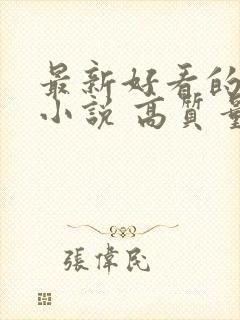 最新好看的
小说 高質量
張偉民